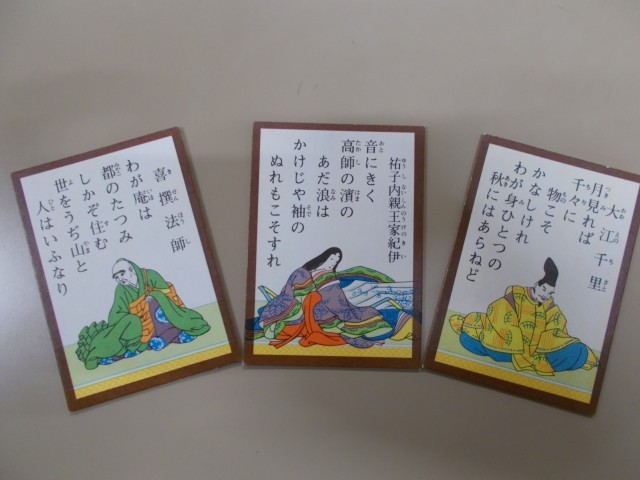 喜撰法師
わが庵は
都のたつみ
しかぞ住む
世をうぢ山と
人はいふなり
祐子内親王家紀伊
音にきく
高師の濱の
あだ浪は
かけじや袖の
ぬれもこそすれ
大江千里
月見れば
千々に
物こそ
かなしけれ
わが身ひとつの
秋にはあらねど